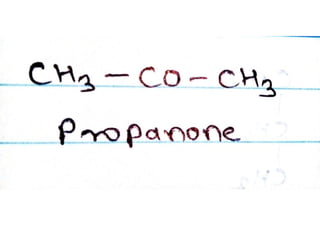 CH₃ – CO – CH₃
Propanone